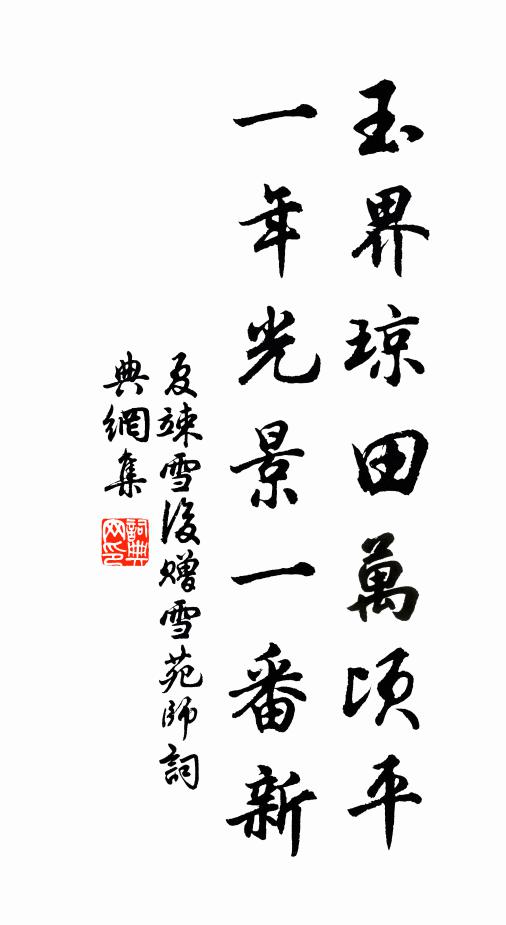 玉界琼田萬頃平
一年光景一番新
夏竦雪後赠雪苑師詞
典網集
詞典网印